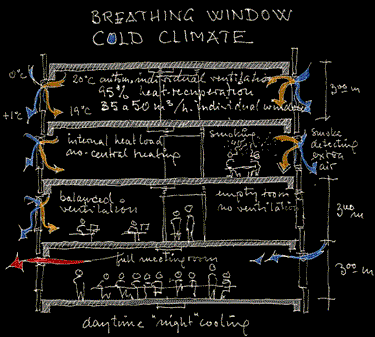 BREATHING WINDOW
COLD CLIMATE
0°C
20°C autom. individual ventilation
95% heat recuperation
35 à 50 m³/h. individual window
+1°C
19°C
3.00 m
internal heat load
no central heating
smoking
smoke
detecting
extra
air
balanced
ventilation
empty room
no ventilation
3.00
m
full meeting room
3.00
m
daytime "night" cooling